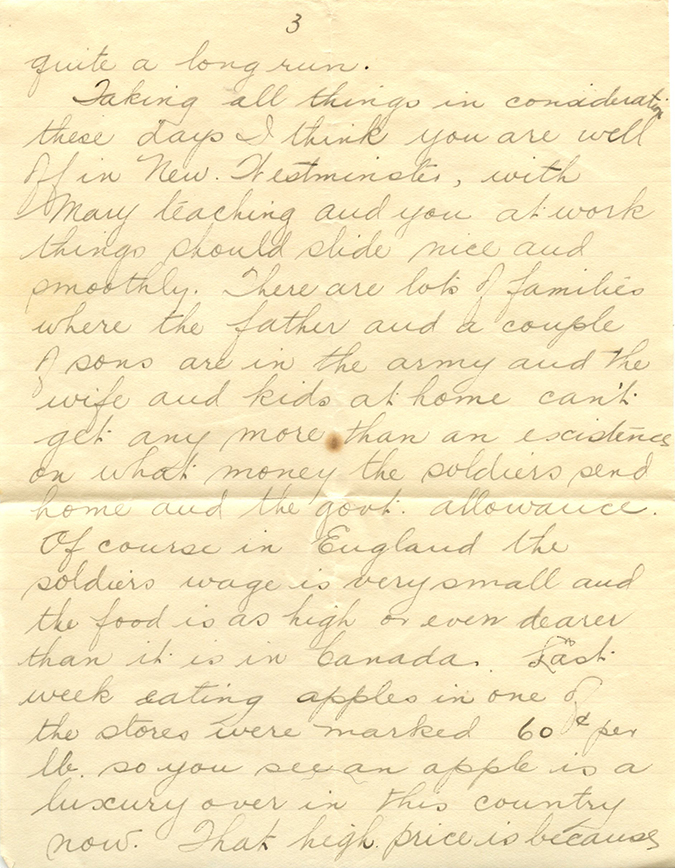 3
quite a long run.
Taking all things in consideration
these days I think you are well
off in New. Westminster, with
Mary teaching and you at work
things should slide nice and
smoothly. There are lots of families
where the father and a couple
of sons are in the army and the
wife and kids at home can't
get any more than an existence
on what money the soldiers send
home and the govt. allowance.
Of course in England the
soldiers wage is very small and
the food is as high or even dearer
than it is in Canada. Last
week eating apples in one of
the stores were marked 60¢ per
lb. so you see an apple is a
luxury over in this country
now. That high price is because